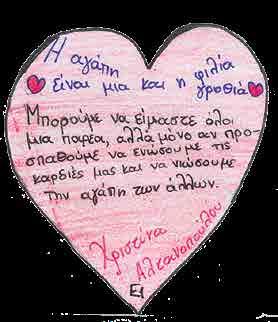 Η αγάπη
είναι μια και η φιλία
γροθιά
Μπορούμε να είμαστε όλοι
μια παρέα, αλλά μόνο αν προ-
σπαθούμε να ενώσουμε τις
καρδιές μας και να νιώσουμε
την αγάπη των άλλων.
Χριστίνα
Αλεξανοπούλου